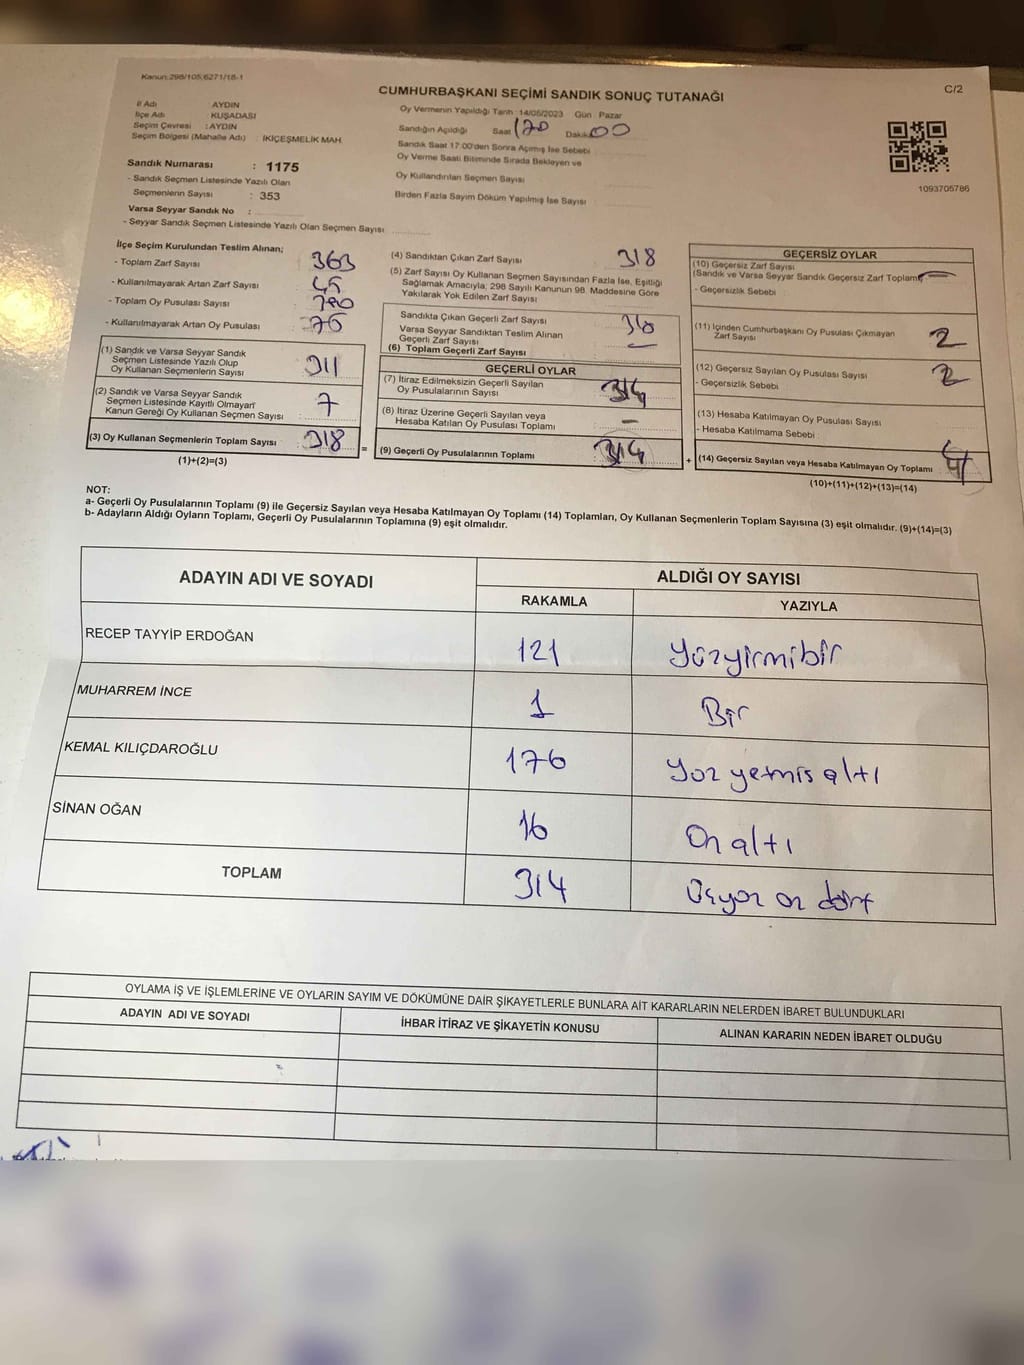 Kanun:298/105,6271/18-1
C/2
CUMHURBAŞKANI SEÇİMİ SANDIK SONUÇ TUTANAĞI
İl Adı AYDIN
İlçe Adı KUŞADASI
Seçim Çevresi : AYDIN
Seçim Bölgesi (Mahalle Adı) : İKİÇEŞMELİK MAH.
Sandık Numarası : 1175
- Sandık Seçmen Listesinde Yazılı Olan
Seçmenlerin Sayısı : 353
Varsa Seyyar Sandık No :
- Seyyar Sandık Seçmen Listesinde Yazılı Olan Seçmen Sayısı
Oy Vermenin Yapıldığı Tarih : 14/05/2023 Gün : Pazar
Sandığın Açıldığı Saat Dakika 00
Sandık Saat 17:00'den Sonra Açımış İse Sebebi
Oy Verme Saati Bitiminde Sırada Bekleyen ve
Oy Kullandırılan Seçmen Sayısı
Birden Fazla Sayım Döküm Yapılmış İse Sayısı :
1093705786
İlçe Seçim Kurulundan Teslim Alınan;
- Toplam Zarf Sayısı : 363
- Kullanılmayarak Artan Zarf Sayısı : 45
- Toplam Oy Pusulası Sayısı :
- Kullanılmayarak Artan Oy Pusulası : 76
(1) Sandık ve Varsa Seyyar Sandık
Seçmen Listesinde Yazılı Olup
Oy Kullanan Seçmenlerin Sayısı : 311
(2) Sandık ve Varsa Seyyar Sandık
Seçmen Listesinde Kayıtlı Olmayan
Kanun Gereği Oy Kullanan Seçmen Sayısı : 7
(3) Oy Kullanan Seçmenlerin Toplam Sayısı : 318
(1)+(2)=(3)
=
(4) Sandıktan Çıkan Zarf Sayısı : 318
(5) Zarf Sayısı Oy Kullanan Seçmen Sayısından Fazla İse, Eşitliği
Sağlamak Amacıyla; 298 Sayılı Kanunun 98. Maddesine Göre
Yakılarak Yok Edilen Zarf Sayısı :
Sandıkta Çıkan Geçerli Zarf Sayısı :
Varsa Seyyar Sandıktan Teslim Alınan
Geçerli Zarf Sayısı : —
(6) Toplam Geçerli Zarf Sayısı :
GEÇERLİ OYLAR
(7) İtiraz Edilmeksizin Geçerli Sayılan
Oy Pusulalarının Sayısı : 314
(8) İtiraz Üzerine Geçerli Sayılan veya
Hesaba Katılan Oy Pusulası Toplamı : —
(9) Geçerli Oy Pusulalarının Toplamı : 314
+
GEÇERSİZ OYLAR
(10) Geçersiz Zarf Sayısı
(Sandık ve Varsa Seyyar Sandık Geçersiz Zarf Toplamı) —
- Geçersizlik Sebebi :
(11) İçinden Cumhurbaşkanı Oy Pusulası Çıkmayan
Zarf Sayısı : 2
(12) Geçersiz Sayılan Oy Pusulası Sayısı : 2
- Geçersizlik Sebebi :
(13) Hesaba Katılmayan Oy Pusulası Sayısı :
- Hesaba Katılmama Sebebi :
(14) Geçersiz Sayılan veya Hesaba Katılmayan Oy Toplamı : 4
(10)+(11)+(12)+(13)=(14)
NOT:
a- Geçerli Oy Pusulalarının Toplamı (9) ile Geçersiz Sayılan veya Hesaba Katılmayan Oy Toplamı (14) Toplamları, Oy Kullanan Seçmenlerin Toplam Sayısına (3) eşit olmalıdır. (9)+(14)=(3)
b- Adayların Aldığı Oyların Toplamı, Geçerli Oy Pusulalarının Toplamına (9) eşit olmalıdır.
ADAYIN ADI VE SOYADI ALDIĞI OY SAYISI
RAKAMLA YAZIYLA
RECEP TAYYİP ERDOĞAN 121 Yüzyirmibir
MUHARREM İNCE 1 Bir
KEMAL KILIÇDAROĞLU 176 Yüz yetmiş altı
SİNAN OĞAN 16 On altı
TOPLAM 314 Üçyüz on dört
OYLAMA İŞ VE İŞLEMLERİNE VE OYLARIN SAYIM VE DÖKÜMÜNE DAİR ŞİKAYETLERLE BUNLARA AİT KARARLARIN NELERDEN İBARET BULUNDUKLARI
ADAYIN ADI VE SOYADI İHBAR İTİRAZ VE ŞİKAYETİN KONUSU ALINAN KARARIN NEDEN İBARET OLDUĞU